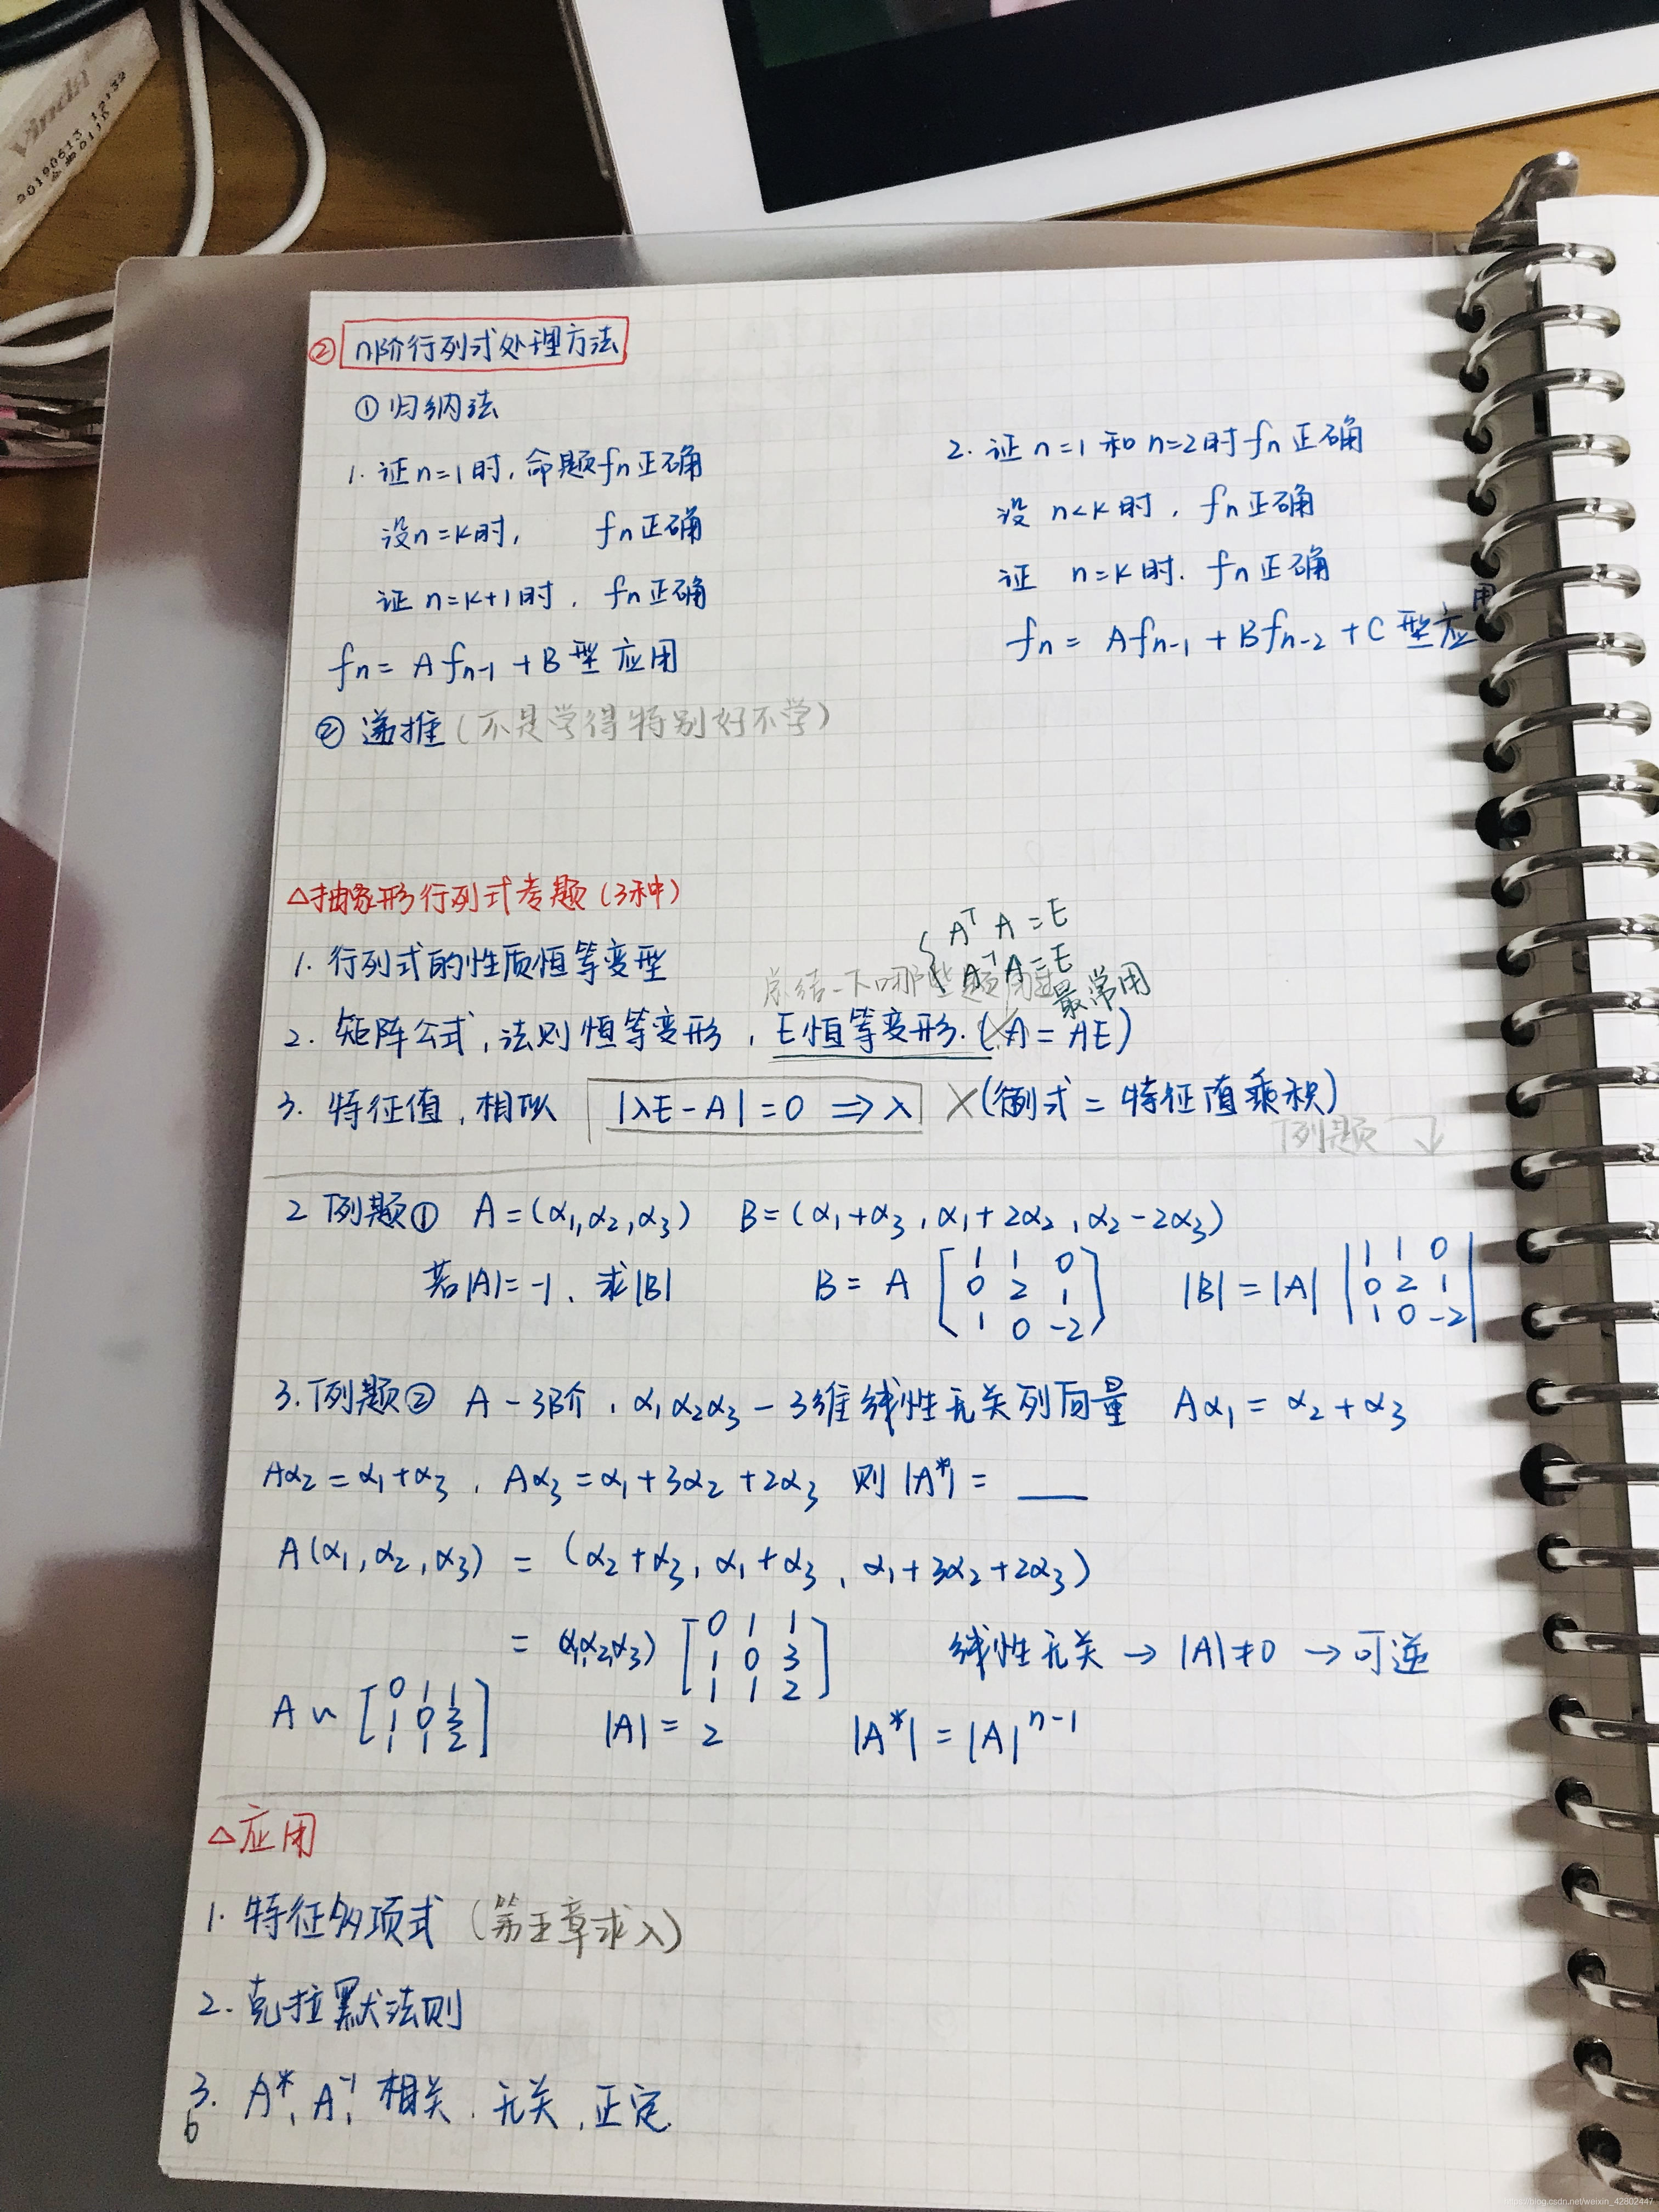 Vinda
20190613 12:32
② n阶行列式处理方法
① 归纳法
1. 证n=1时, 命题fn正确
设n=k时, fn正确
证 n=k+1时, fn正确
fn = A fn-1 + B 型 应用
2. 证 n=1 和 n=2时 fn 正确
设 n<k 时, fn 正确
证 n=k 时. fn 正确
fn = Afn-1 + Bfn-2 + C 型 应用
② 递推 (不是学得特别好不学)
△抽象形行列式专题 (3种)
1. 行列式的性质恒等变型
{ Aᵀ A = E
A⁻¹ A = E
总结一下哪些题 最常用
2. 矩阵公式, 法则恒等变形, E恒等变形. (A = AE)
3. 特征值, 相似 |λE-A|=0 ⇒ λ ×(行列式 = 特征值乘积)
例题 ↓
2 例题① A=(α₁,α₂,α₃) B=(α₁+α₃, α₁+2α₂, α₂-2α₃)
若|A|=-1, 求|B| B = A [1 1 0 |B| = |A| |1 1 0|
0 2 1 0 2 1
1 0 -2] 1 0 -2|
3. 例题② A-3阶, α₁α₂α₃-3维线性无关列向量 Aα₁ = α₂+α₃
Aα₂=α₁+α₃, Aα₃=α₁+3α₂+2α₃ 则 |A*| = ___
A(α₁,α₂,α₃) = (α₂+α₃, α₁+α₃, α₁+3α₂+2α₃)
= (α₁,α₂,α₃) [0 1 1
1 0 3
1 1 2] 线性无关 → |A|≠0 → 可逆
A ~ [0 1 1
1 0 3
1 1 2] |A| = 2 |A*| = |A|ⁿ⁻¹
△应用
1. 特征多项式 (第五章求λ)
2. 克拉默法则
3. A*, A⁻¹, 相关, 无关, 正定.
6
https://blog.csdn.net/weixin_42802447